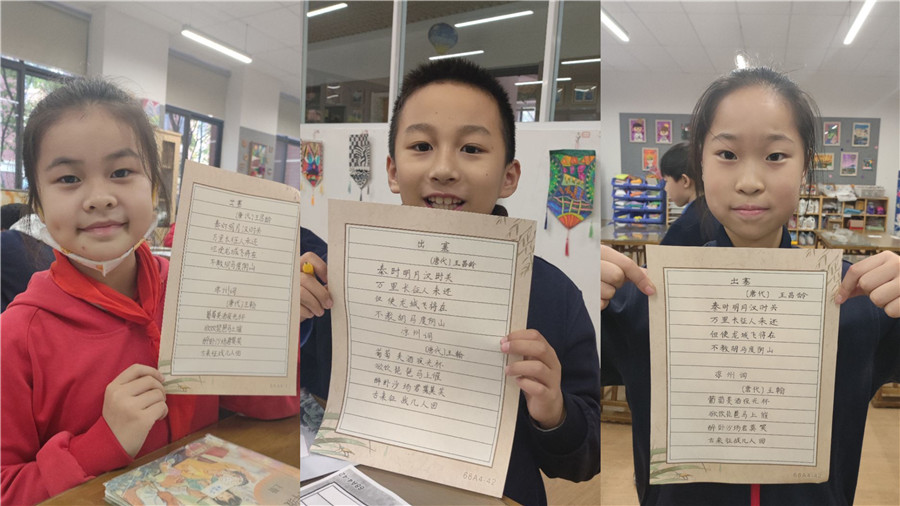 出塞
(唐代)王昌龄
秦时明月汉时关
万里长征人未还
但使龙城飞将在
不教胡马度阴山
凉州词
(唐代)王翰
葡萄美酒夜光杯
欲饮琵琶马上催
醉卧沙场君莫笑
古来征战几人回
出塞
(唐代)王昌龄
秦时明月汉时关
万里长征人未还
但使龙城飞将在
不教胡马度阴山
凉州词
(唐代)王翰
葡萄美酒夜光杯
欲饮琵琶马上催
醉卧沙场君莫笑
古来征战几人回
出塞
(唐代)王昌龄
秦时明月汉时关
万里长征人未还
但使龙城飞将在
不教胡马度阴山
凉州词
(唐代)王翰
葡萄美酒夜光杯
欲饮琵琶马上催
醉卧沙场君莫笑
古来征战几人回